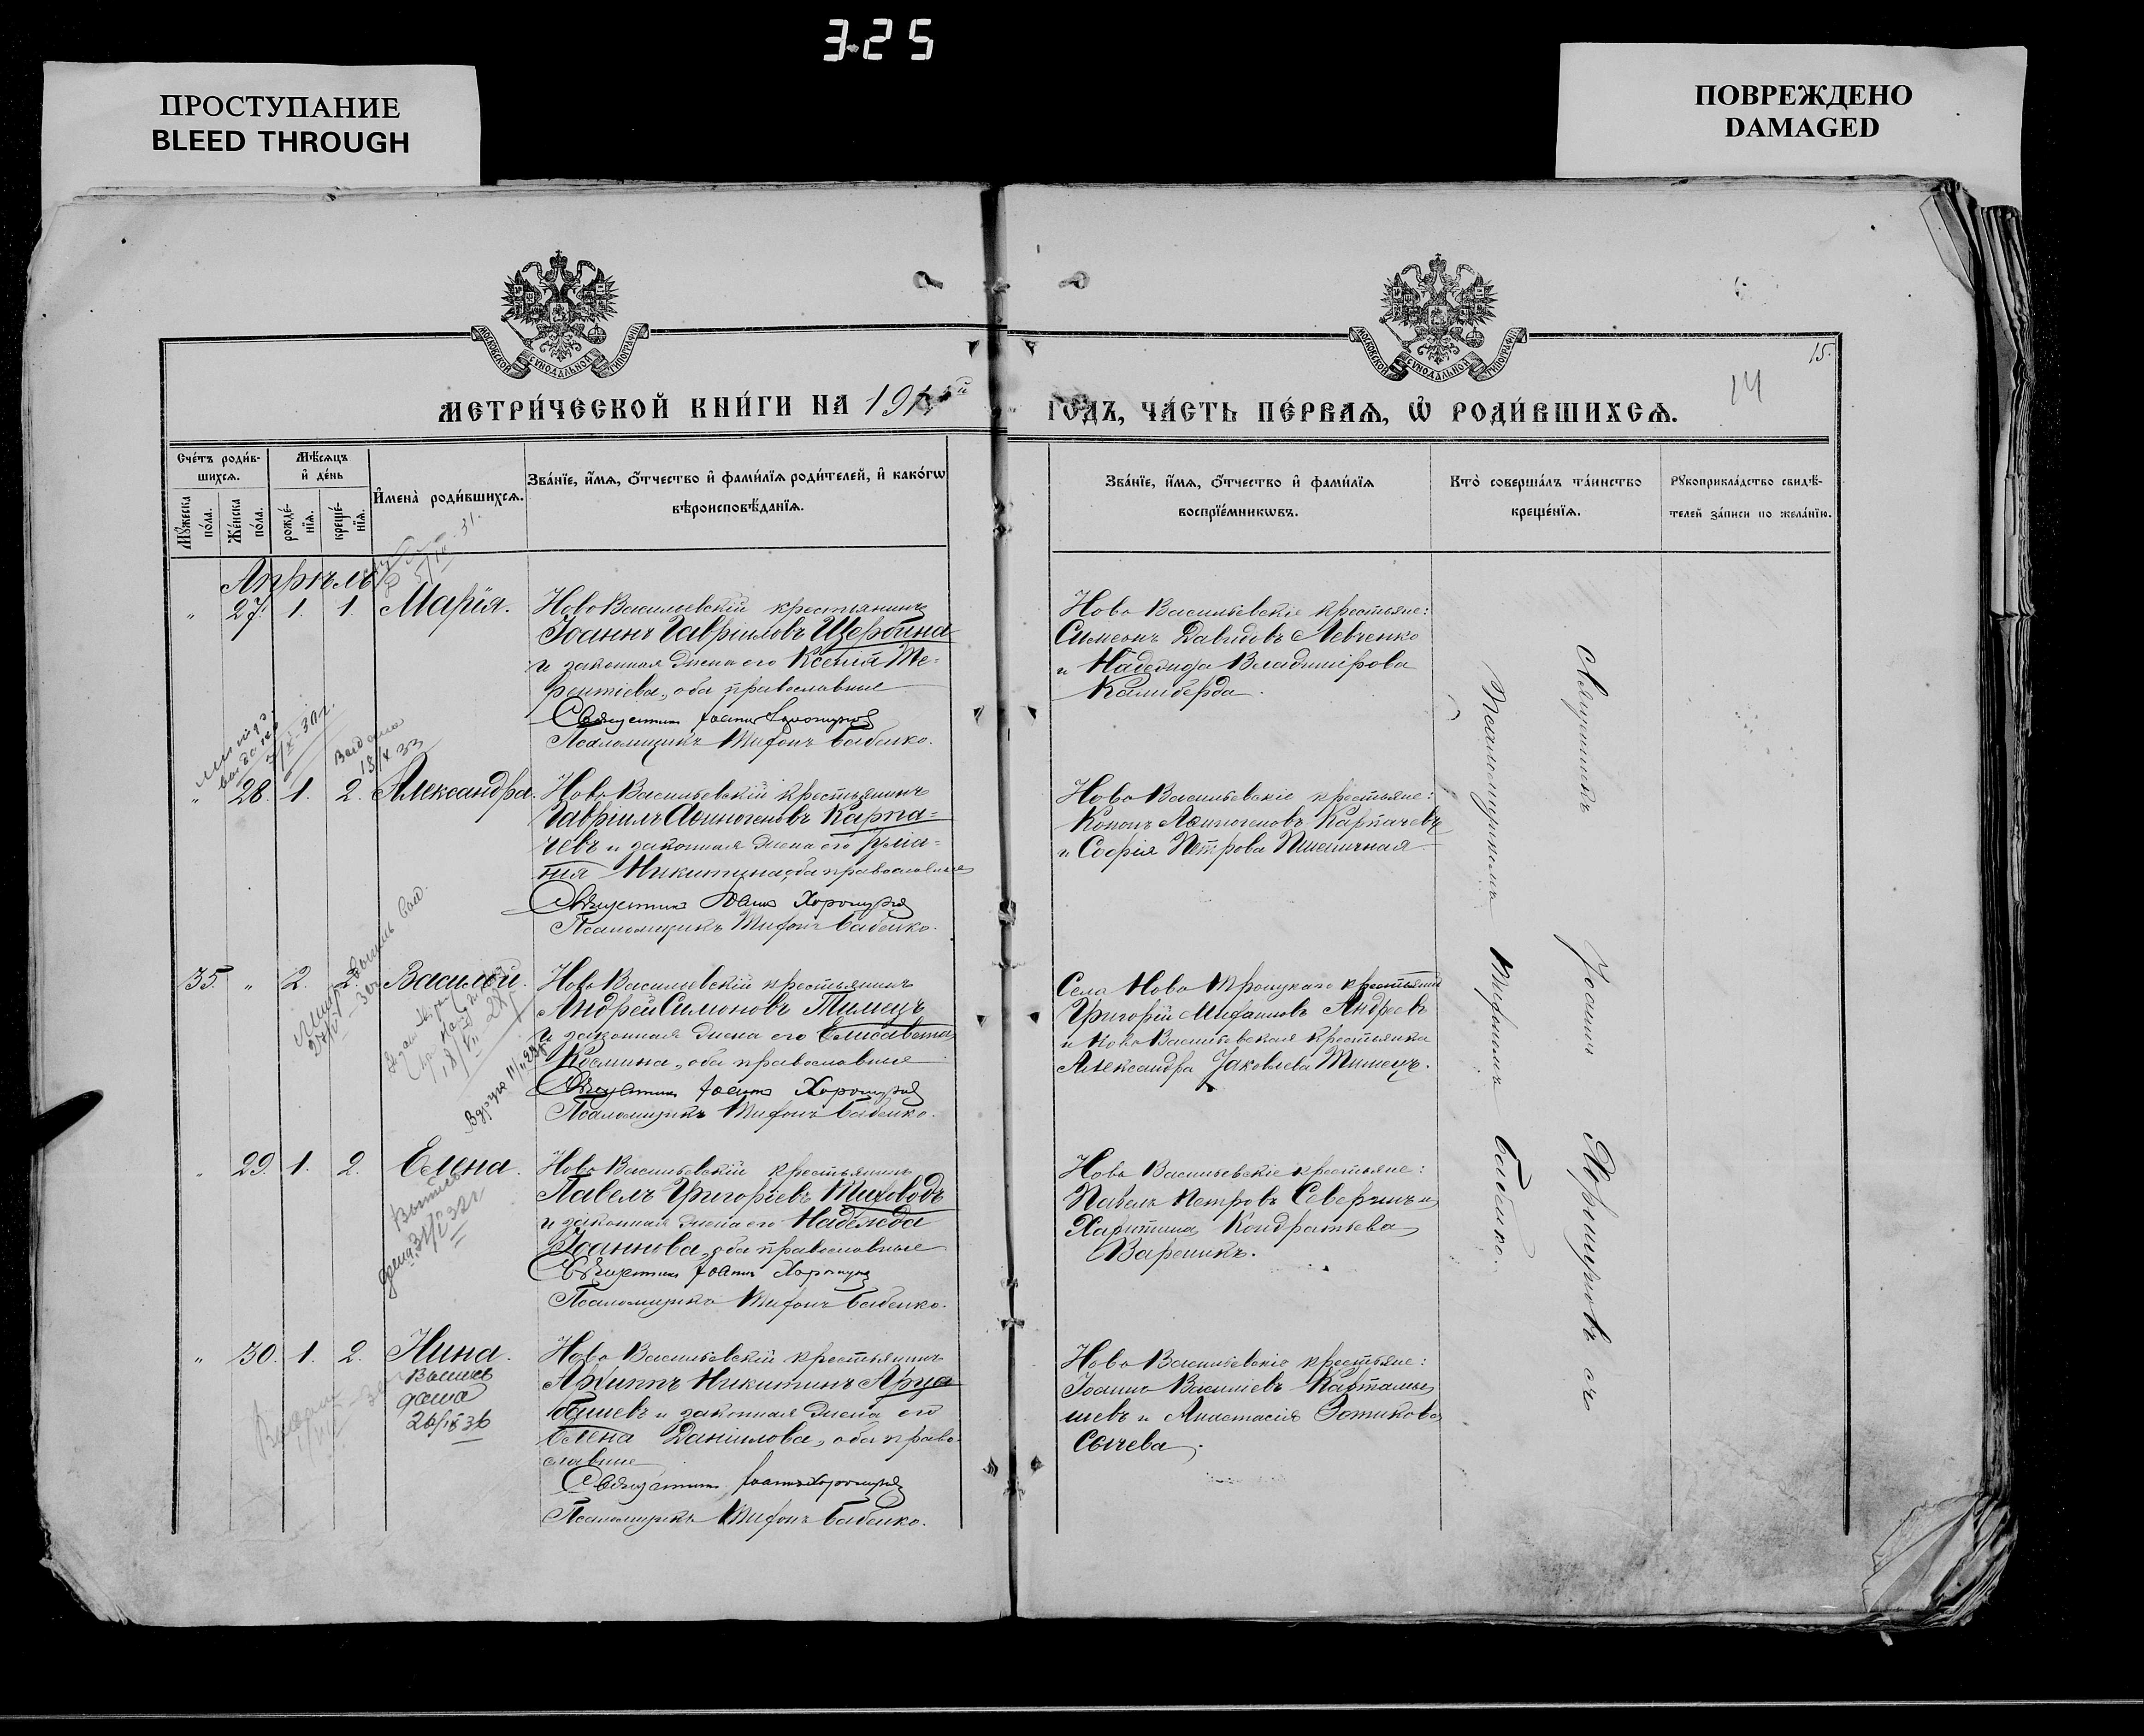 3-25
ПРОСТУПАНИЕ
BLEED THROUGH
ПОВРЕЖДЕНО
DAMAGED
МОСКОВСКОЙ СѴНОДАЛЬНОЙ ТИПОГРАФІИ
МОСКОВСКОЙ СѴНОДАЛЬНОЙ ТИПОГРАФІИ
15.
14
МЕТРИ́ЧЕСКОЙ КНИ́ГИ НА 191
ГОДЪ, ЧА́СТЬ ПЕ́РВАѦ, Ѽ РОДИ́ВШИХСѦ.
Сче́тъ роди́в-
шихсѧ.
Мѣ́сѧцъ
и҆ де́нь
Мꙋ́жеска по́ла.
Же́нска по́ла.
рожде́-
нїѧ.
креще́-
нїѧ.
И҆мена̀ роди́вшихсѧ.
Зва́нїе, и҆́мѧ, ѻ҆́тчество и҆ фами́лїѧ роди́телей, и҆ како́гѡ
вѣроисповѣ́данїѧ.
Зва́нїе, и҆́мѧ, ѻ҆́тчество и҆ фами́лїѧ
воспрїе́мникѡвъ.
Кто̀ соверша́лъ та́инство
креще́нїѧ.
Рꙋкоприкла́дство свидѣ́-
телей за́писи по жела́нїю.
Апрѣль
" 27. 1. 1. Марія.
Ново Васильевскій крестьянинъ
Іоаннъ Гавріиловъ Щербина
и законная жена его Ксенія Те-
рентіева, оба православные
Священникъ Іоаннъ Хорошуновъ
Псаломщикъ Тифонъ Бабенко.
Ново Васильевскіе крестьяне:
Симеонъ Давидовъ Левченко
и Надежда Владимірова
Калиберда.
Выдана
18/X 33
" 28. 1. 2. Александра.
Ново Васильевскій крестьянинъ
Гавріилъ Авиногеновъ Карпа-
чевъ и законная жена его Іулiа-
нія Никитина, оба православные
Священникъ Іоаннъ Хорошуновъ
Псаломщикъ Тифонъ Бабенко.
Ново Васильевскіе крестьяне:
Кононъ Авиногеновъ Карпачевъ
и Софія Петрова Пшеничная
35. " 2. 2. Василій.
Ново Васильевскій крестьянинъ
Андрей Симоновъ Тимецъ
и законная жена его Елисавета
Козмина, оба православные
Священникъ Іоаннъ Хорошуновъ
Псаломщикъ Тифонъ Бабенко.
Села Ново Троицкаго крестьянинъ
Григорій Андреевъ
и Ново Васильевская крестьянка
Александра Іаковлева Тимецъ.
" 29. 1. 2. Елена.
Ново Васильевскій крестьянинъ
Павелъ Григоріевъ Тиховодъ
и законная жена его Надежда
Іоаннова, оба православные
Священникъ Іоаннъ Хорошуновъ
Псаломщикъ Тифонъ Бабенко.
Ново Васильевскіе крестьяне:
Павелъ Петровъ Северинъ и
Харитина Кондратьева
Вареникъ.
" 30. 1. 2. Нина.
26/IX 36
Ново Васильевскій крестьянинъ
Архиппъ Никитинъ
и законная жена его
Елена Даніилова, оба право-
славные
Священникъ Іоаннъ Хорошуновъ
Псаломщикъ Тифонъ Бабенко.
Ново Васильевскіе крестьяне:
Іоаннъ Василіевъ Картамы
шевъ и Анастасія Зотикова
Сычева.
Священникъ Іоаннъ Хорошуновъ съ
Псаломщикомъ Тифономъ Бабенко.